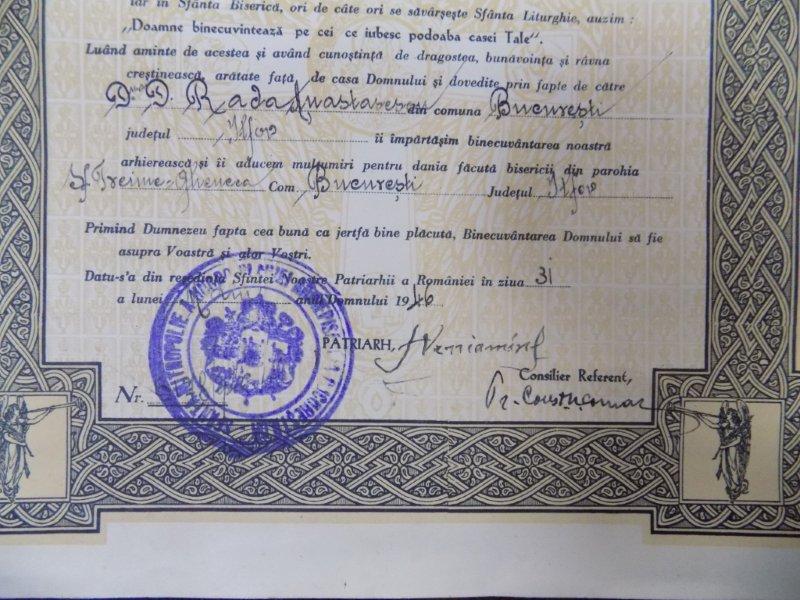 iar în Sfânta Biserică, ori de câte ori se săvârșește Sfânta Liturghie, auzim :
„Doamne binecuvintează pe cei ce iubesc podoaba casei Tale".
Luând aminte de acestea și având cunoștință de dragostea, bunăvoința și râvna
creștinească, arătate față de casa Domnului și dovedite prin fapte de către
D. Rada Anastasescu din comuna București
județul Ilfov îi împărtășim binecuvântarea noastră
arhierească și îi aducem mulțumiri pentru dania făcută bisericii din parohia
Sf Treime-Ghencea Com. București Județul Ilfov
Primind Dumnezeu fapta cea bună ca jertfă bine plăcută, Binecuvântarea Domnului să fie
asupra Voastră și alor Voștri.
Datu-s'a din reședința Sfintei Noastre Patriarhii a României în ziua 31
a lunei anul Domnului 1940
PATRIARH,
Consilier Referent,
Nr.